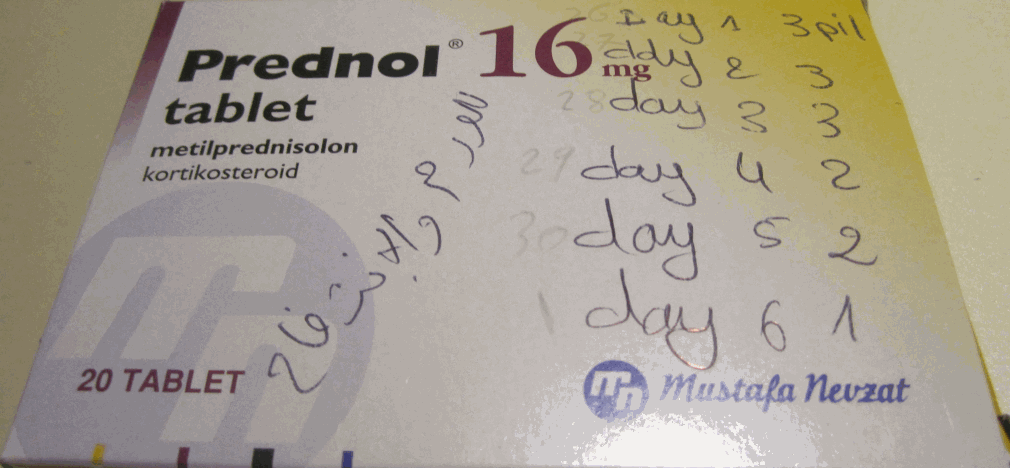 Prednol® 16 mg
tablet
metilprednisolon
kortikosteroid
26 Day 1 3 pil
27 day 2 3
28 day 3 3
29 day 4 2
30 day 5 2
1 day 6 1
للورم والانتفاخ
20 TABLET
mn Mustafa Nevzat